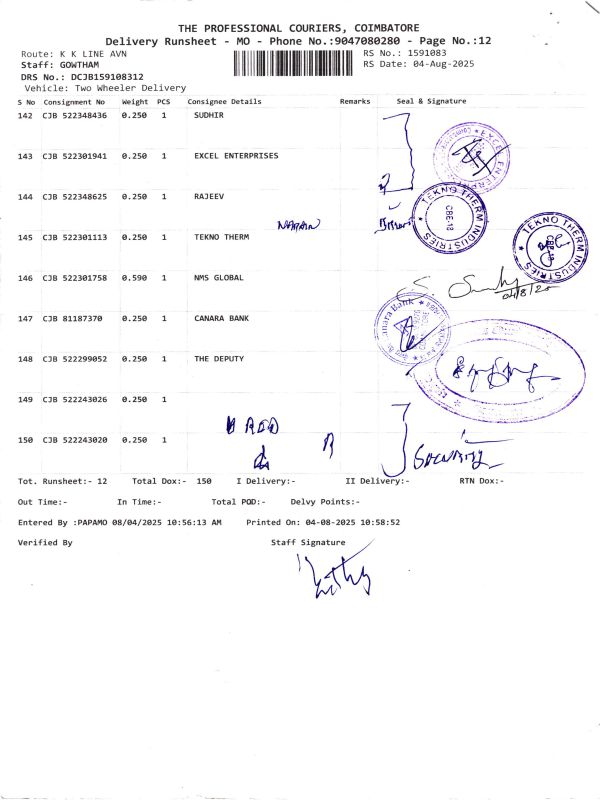 THE PROFESSIONAL COURIERS, COIMBATORE
Delivery Runsheet - MO - Phone No.:9047080280 - Page No.:12
Route: K K LINE AVN RS No.: 1591083
Staff: GOWTHAM RS Date: 04-Aug-2025
DRS No.: DCJB159108312
Vehicle: Two Wheeler Delivery
S No Consignment No Weight PCS Consignee Details Remarks Seal & Signature
142 CJB 522348436 0.250 1 SUDHIR
143 CJB 522301941 0.250 1 EXCEL ENTERPRISES
144 CJB 522348625 0.250 1 RAJEEV
TEKNO THERM INDUSTRIES CBE-12
145 CJB 522301113 0.250 1 TEKNO THERM
TEKNO THERM INDUSTRIES
146 CJB 522301758 0.590 1 NMS GLOBAL
04/8/25
147 CJB 81187370 0.250 1 CANARA BANK
Canara Bank
148 CJB 522299052 0.250 1 THE DEPUTY
149 CJB 522243026 0.250 1
150 CJB 522243020 0.250 1
Security
Tot. Runsheet:- 12 Total Dox:- 150 I Delivery:- II Delivery:- RTN Dox:-
Out Time:- In Time:- Total POD:- Delvy Points:-
Entered By :PAPAMO 08/04/2025 10:56:13 AM Printed On: 04-08-2025 10:58:52
Verified By Staff Signature